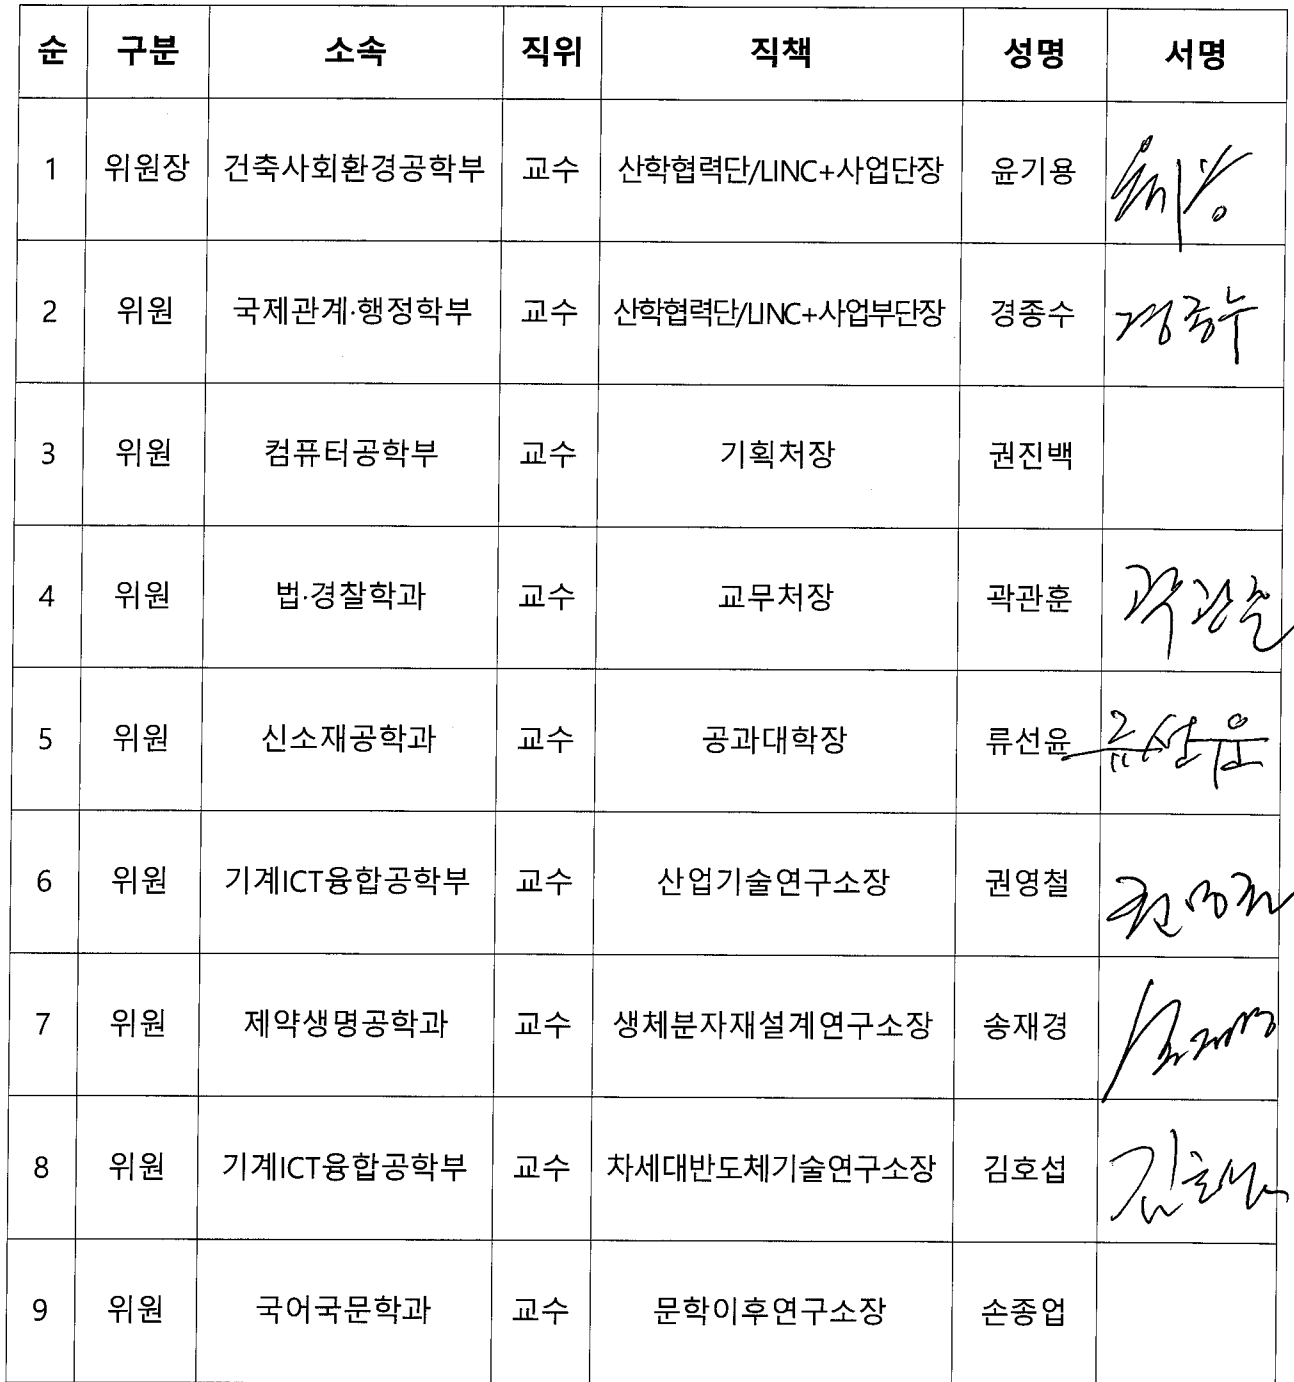 순 구분 소속 직위 직책 성명 서명
1 위원장 건축사회환경공학부 교수 산학협력단/LINC+사업단장 윤기용 윤기용
2 위원 국제관계·행정학부 교수 산학협력단/LINC+사업부단장 경종수 경종수
3 위원 컴퓨터공학부 교수 기획처장 권진백
4 위원 법·경찰학과 교수 교무처장 곽관훈 곽관훈
5 위원 신소재공학과 교수 공과대학장 류선윤 류선윤
6 위원 기계ICT융합공학부 교수 산업기술연구소장 권영철 권영철
7 위원 제약생명공학과 교수 생체분자재설계연구소장 송재경 송재경
8 위원 기계ICT융합공학부 교수 차세대반도체기술연구소장 김호섭 김호섭
9 위원 국어국문학과 교수 문학이후연구소장 손종업